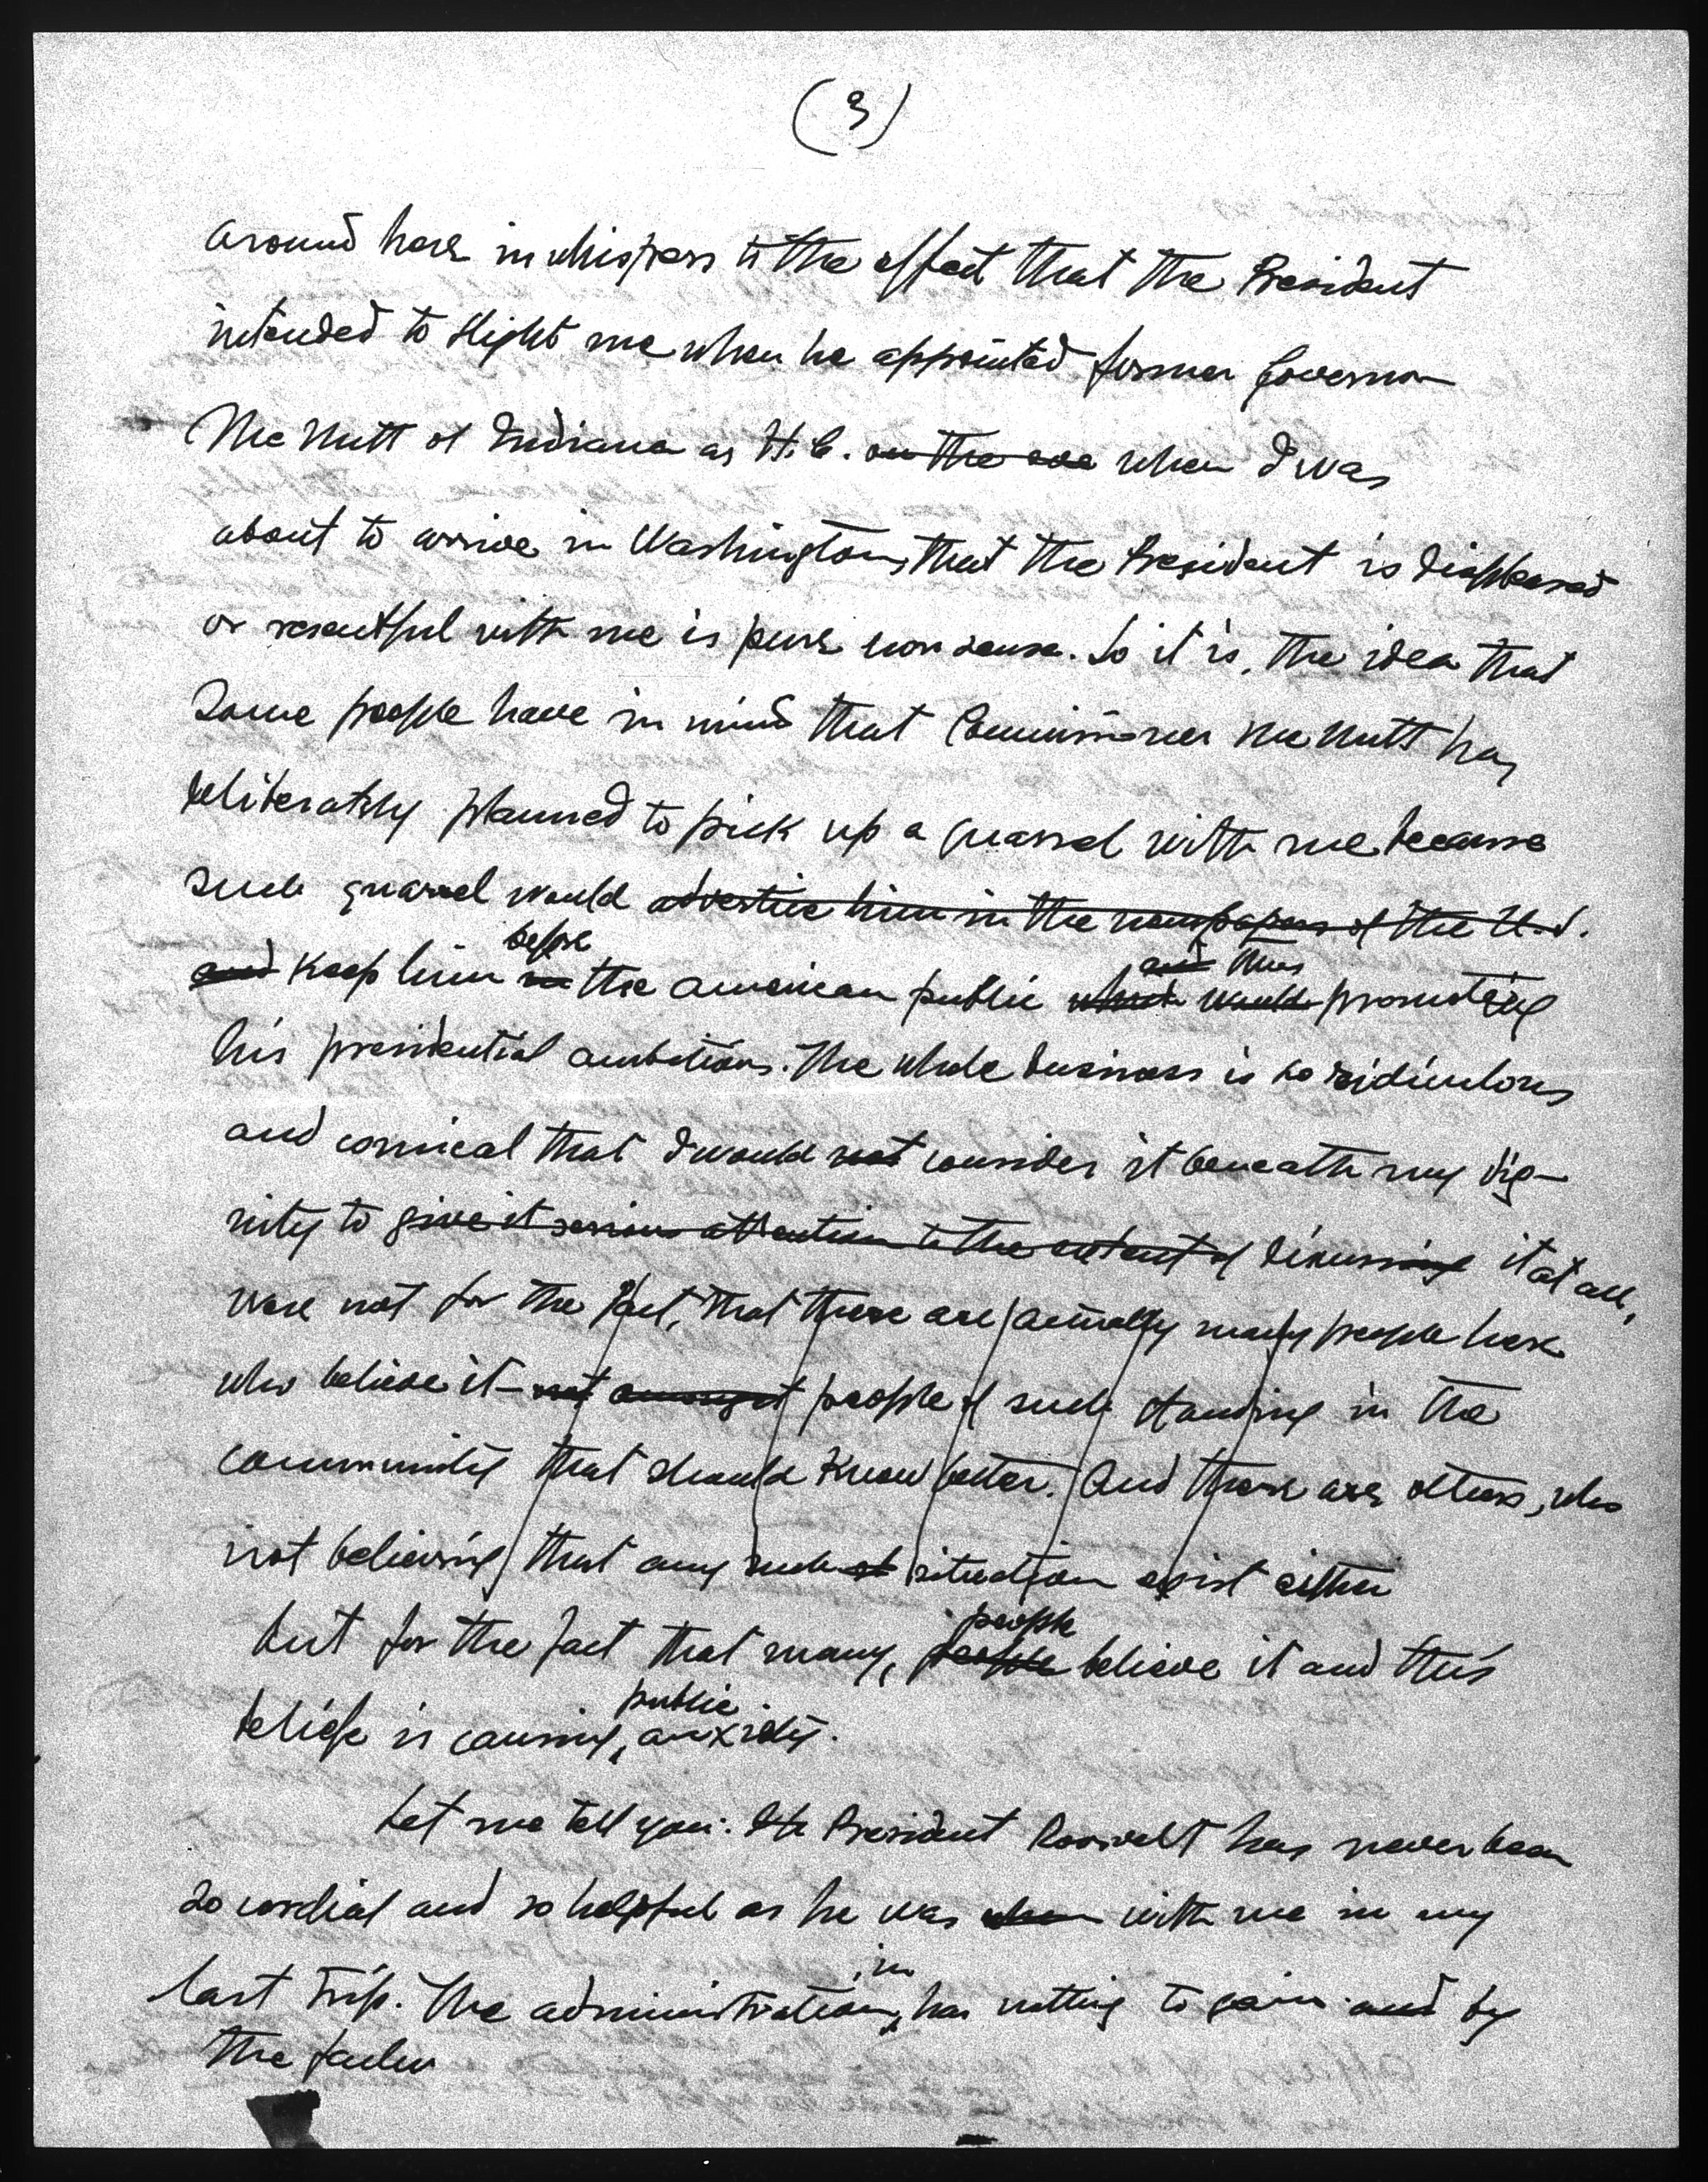 (3)
around here in whispers to the effect that the President
intended to slight me when he appointed former Governor
McNutt of Indiana as H.C. on the eve when I was
about to arrive in Washington, that the President is displeased
or resentful with me is pure nonsense. So it is, the idea that
some people have in mind that Commissioner McNutt has
deliberately planned to pick up a quarrel with me because
such quarrel would advertise him in the newspapers of the U.S.
before
and thus
and keep him in the american public which would promoting
his presidential ambitions. The whole business is so ridiculous
and comical that I would not consider it beneath my dig-
nity to give it serious attention to the extent of discussing it at all,
were not for the fact, that there are actually many people here
who believe it – not amongst people of such standing in the
community that should know better. And there are others, who
not believing that any such situation exist either
people
but for the fact that many, people believe it and this
public
belief is causing, anxiety.
Let me tell you: President Roosevelt has never been
so cordial and so helpful as he was when with me in my
in
last trip. The administration, has nothing to gain and by
the